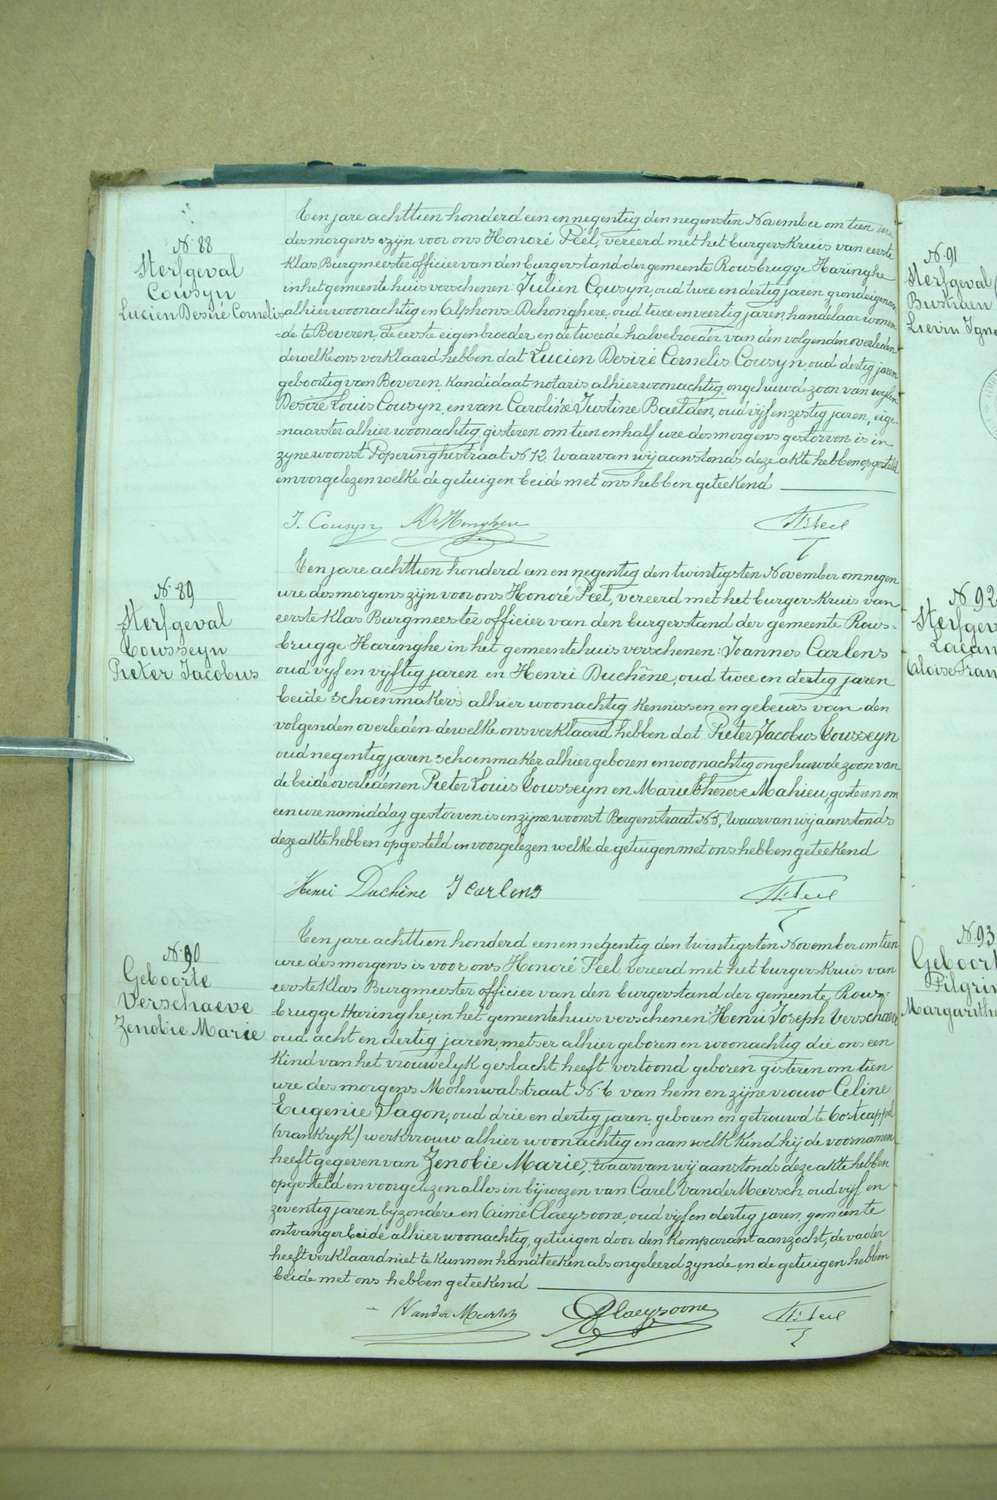 N. 88
Sterfgeval
Cousyn
Lucien Desiré Cornelis
Een jare achttien honderd een en negentig den negensten November om tien ure
des morgens zijn voor ons Honoré Peel, vereerd met het burgerskruis van eerste
klas Burgmeester officier van den burgerstand der gemeente Rousbrugge Haringhe
in het gemeentehuis verschenen: Julien Cousyn, oud twee en dertig jaren grondeigenaar
alhier woonachtig en Alphonse Dehonghere, oud twee en veertig jaren, handelaar wonen
de te Beveren, de eerste eigen broeder en de tweede halve broeder van den volgenden overleden
dewelke ons verklaard hebben dat Lucien Desiré Cornelis Cousyn, oud dertig jaren
geboortig van Beveren, kandidaat notaris alhier woonachtig ongehuwde zoon van wylen
Desiré Louis Cousyn, en van Caroline Justine Baelden, oud vijf en zestig jaren, eige-
naarster alhier woonachtig gisteren om tien en half ure des morgens gestorven is in
zyne woonst Poperinghestraat N. 12. Waarvan wij aanstonds deze akte hebben opgesteld
en voorgelezen welke de getuigen beide met ons hebben geteekend
J. Cousyn
Hre Peel
N. 89
Sterfgeval
Cousseyn
Pieter Jacobus
Een jare achttien honderd een en negentig den twintigsten November om negen
ure des morgens zijn voor ons Honoré Peel, vereerd met het burgerskruis van
eerste klas Burgmeester officier van den burgerstand der gemeente Rous-
brugge Haringhe in het gemeentehuis verschenen: Joannes Carlens
oud vijf en vijftig jaren en Henri Duchêne, oud twee en dertig jaren
beide schoenmakers alhier woonachtig kennissen en gebeurs van den
volgenden overleden dewelke ons verklaard hebben dat Pieter Jacobus Cousseyn
oud negentig jaren schoenmaker alhier geboren en woonachtig ongehuwde zoon van
de beide overledenen Pieter Louis Cousseyn en Marie Therese Mahieu, gisteren om
een ure namiddag gestorven is in zijne woonst Bergenstraat N. 5, Waarvan wij aanstonds
deze akte hebben opgesteld en voorgelezen welke de getuigen met ons hebben geteekend
Henri Duchêne J Carlens
Hre Peel
N. 90
Geboorte
Verschaeve
Zenobie Marie
Een jare achttien honderd een en negentig den twintigsten November om tien
ure des morgens is voor ons Honoré Peel vereerd met het burgerskruis van
eerste klas Burgmeester officier van den burgerstand der gemeente Rous-
brugge Haringhe, in het gemeentehuis verschenen: Henri Joseph Verschaeve
oud acht en dertig jaren, metser alhier geboren en woonachtig die ons een
kind van het vrouwelyk geslacht heeft vertoond geboren gisteren om tien
ure des morgens Molenwalstraat N. 6 van hem en zijne vrouw Celine
Eugenie Sagon, oud drie en dertig jaren, geboren en getrouwd te Oostcappel
(vrankryk) werkvrouw alhier woonachtig en aan welk kind hij de voornamen
heeft gegeven van Zenobie Marie, Waarvan wij aanstonds deze akte hebben
opgesteld en voorgelezen alles in bijwezen van Carel Vander Meersch oud vijf en
zeventig jaren byzondere en Aimé Claeysoone, oud vijf en dertig jaren, gemeente
ontvanger beide alhier woonachtig, getuigen door den komparant aanzocht, de vader
heeft verklaard niet te kunnen handteeken als ongeleerd zynde en de getuigen hebben
beide met ons hebben geteekend
Vander Meersch
Claeysoone
Hre Peel
N. 91
Sterfgeval
Busraen
Lievin Igna
N. 92
Sterfgev
Lacan
Aloise Fran
N. 93
Geboort
Pilgrim
Margarithe